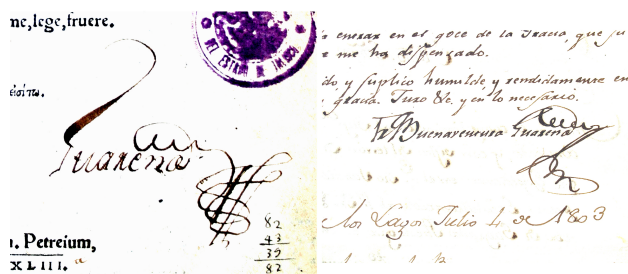 ne, lege, fruere.
DEL ESTADO DE JALISCO
Guareña
82
43
39
82
. Petreium,
XLIII. a
entrar en el goce de la Gracia, que su
me ha dispensado.
do y suplico humilde, y rendidamente en
gracia. Juro &c. y en lo necesario.
Fr. Buenaventura Guareña
los Lagos Julio 4 de 1803